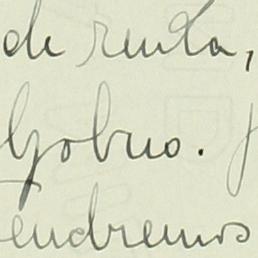 de renta,
Gobno.
endremos